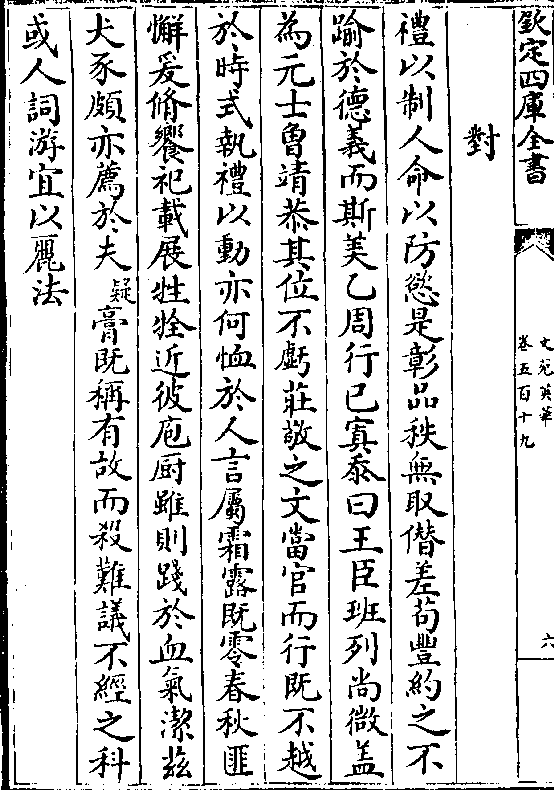 欽定四庫全書
文苑英華
卷五百十九
六
對
禮以制人命以防慾是彰品秩無取僭差苟豐約之不
踰於德義而斯美乙周行已寘忝曰王臣班列尚微盖
為元士魯靖恭其位不虧莊敬之文當官而行既不越
於時式執禮以動亦何恤於人言屬霜露既零春秋匪
懈爰脩饗祀載展牲牷近彼庖厨雖則踐於血氣潔兹
犬豕頗亦薦於夫疑膏既稱有故而殺難議不經之科
或人詞游宜以麗法